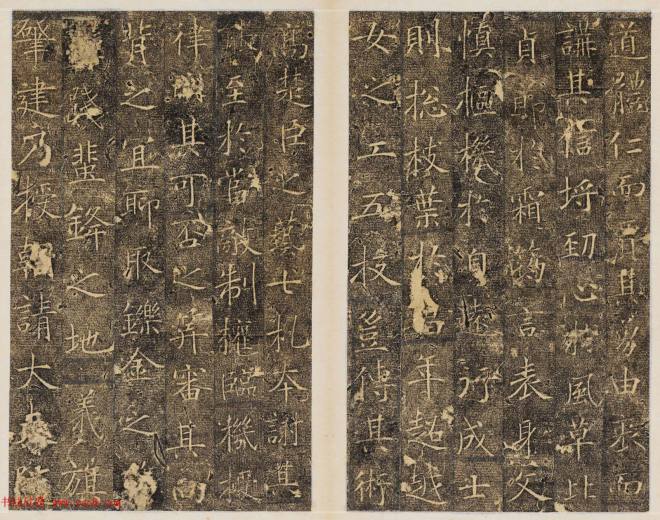 道體仁而其勇由衷而
其信埒勁心於風草比
貞節於霜筠言表身文
慎樞機於行成士
則枝葉於昌年超越
女之工五校豈傳其術
楚臣之藝七札本謝其
至於當敵制權臨機授
律其可否之筭審其向
背之宜聊取鑠金之
蜚鋒之地義旗
肇建乃授朝請大夫